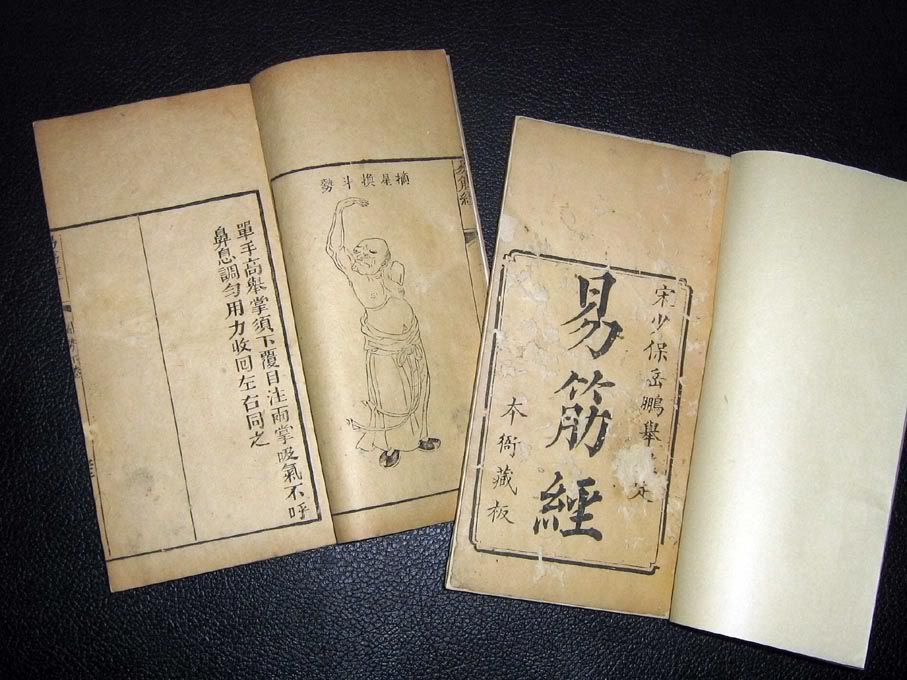 宋少保岳鵬舉定
易筋經
本衙藏板
易筋經
摘星換斗勢
單手高舉掌須下覆目注兩掌吸氣不呼
鼻息調勻用力收回左右同之